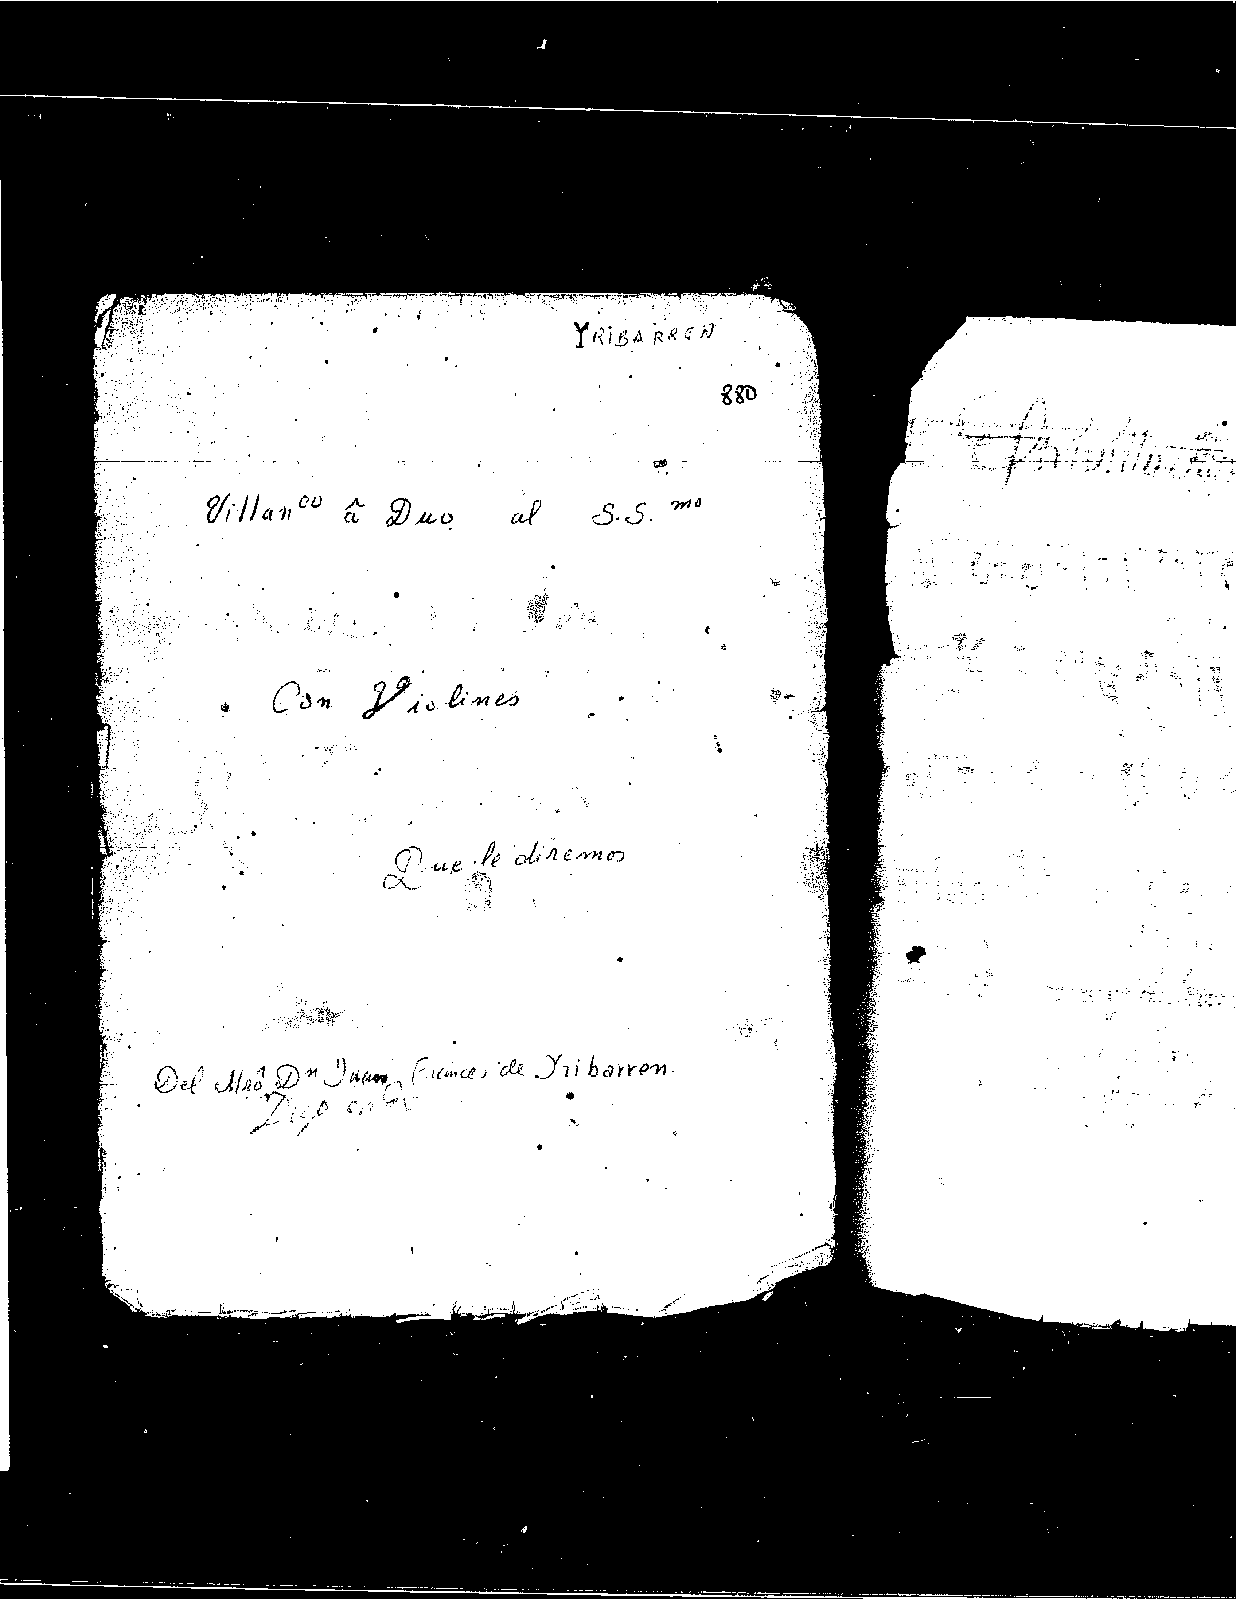 YRIBARREN
880
Villan^co â Duo al S.S.^mo
Con Violines
Que le diremos
Del Mrô D^n Juan Frances de Yribarren